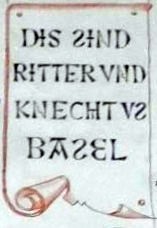 DIS SIND
RITTER VND
KNECHT VS
BASEL